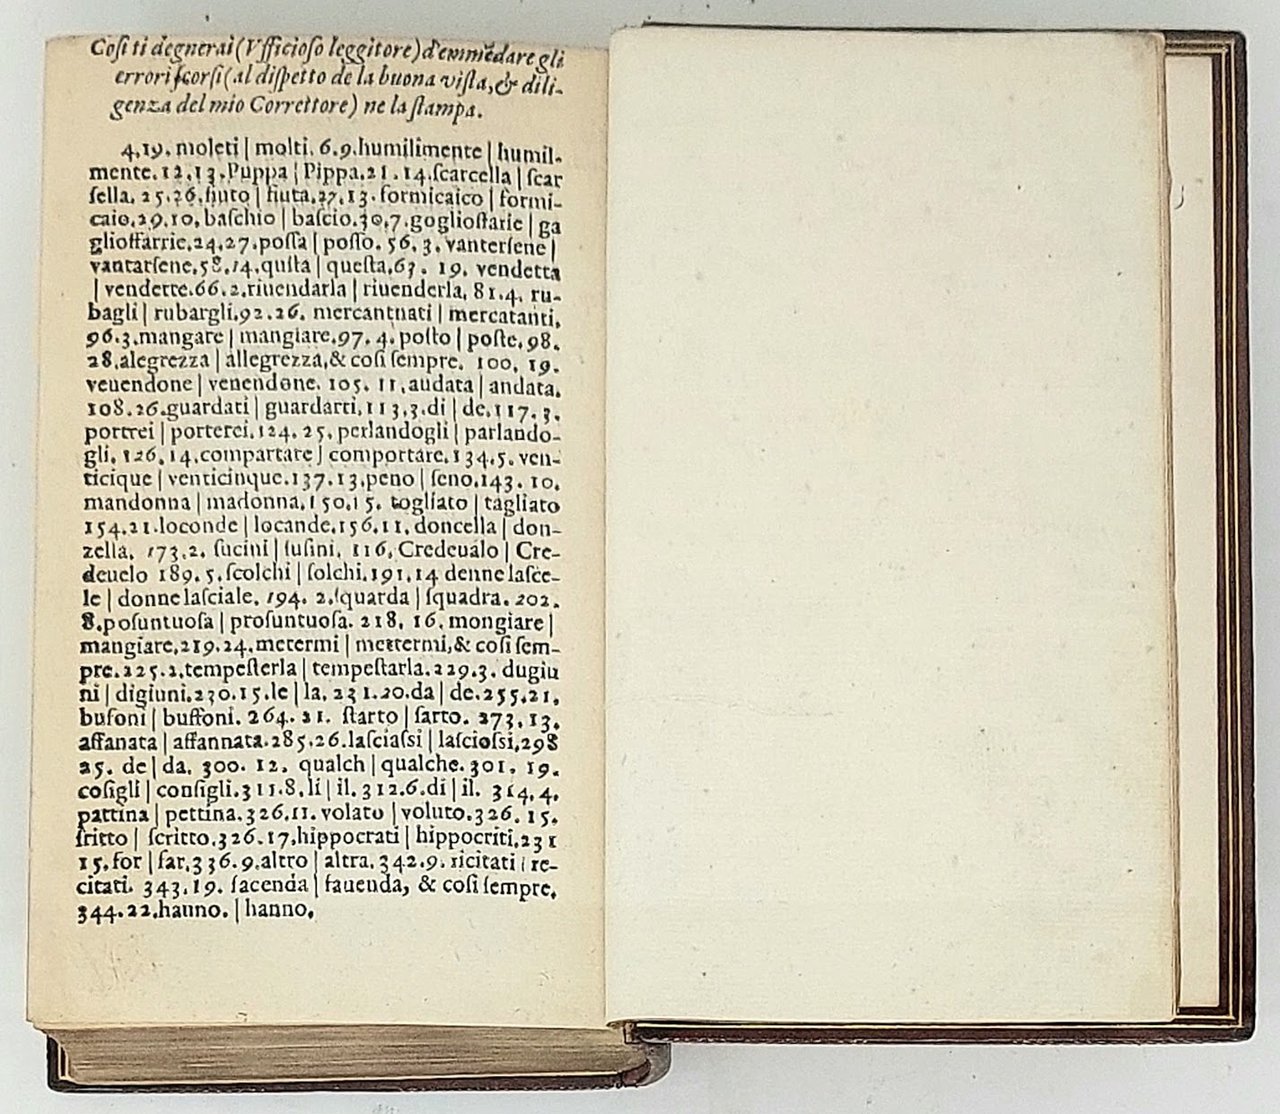 Coſi ti degnerai (Vfficioſo leggitore) d'emmēdare gli
errori ſcorſi (al diſpetto de la buona viſta, & dili-
genza del mio Correttore) ne la ſtampa.
4.19. moleti | molti. 6.9.humilimente | humil-
mente.12.13.Puppa | Pippa.21.14.ſcarcella | ſcar
ſella. 25.26.fiuto | fiuta.27.13.formicaico | formi-
caio.29.10.baſchio | baſcio.30.7.goglioſtarie | ga
glioffarrie.24.27.poſſa | poſſo. 56.3. vanterſene |
vantarſene.58.14.quiſta | queſta.63. 19. vendetta
| vendette.66.2.riuendarla | riuenderla. 81.4. ru-
bagli | rubargli.92.26. mercantnati | mercatanti.
96.3.mangare | mangiare.97.4.poſto | poſte.98.
28.alegrezza | allegrezza,& coſi ſempre. 100. 19.
veuendone | venendone. 105. 11.audata | andata.
108.26.guardati | guardarti.113.3.di | de.117.3.
portrei | porterei.124. 25.perlandogli | parlando-
gli. 126.14.compartare | comportare.134.5.ven-
ticique | venticinque.137.13.peno | ſeno.143. 10.
mandonna | madonna.150.15. togliato | tagliato
154.21.loconde | locande.156.11. doncella | don-
zella. 173.2. ſucini | ſuſini. 116.Credeualo | Cre-
deuelo 189. 5.ſcolchi | ſolchi.191.14 denne laſce-
le | donne laſciale. 194. 2.ſquarda | ſquadra. 202.
8.poſuntuoſa | proſuntuoſa. 218. 16. mongiare |
mangiare.219.24.metermi | mettermi,& coſi ſem-
pre.225.2.tempeſterla | tempeſtarla.229.3. dugiu
ni | digiuni.230.15.le | la. 231.20.da | de.255.21.
bufoni | buffoni. 264. 21. ſtarto | ſarto. 273.13.
affanata | affannata.285.26.laſciaſsi | laſcioſsi.298
25. de | da. 300. 12. qualch | qualche.301. 19.
coſigli | conſigli.311.8.li | il.312.6.di | il. 314.4.
pattina | pettina.326.11. volato | voluto.326. 15.
ſritto | ſcritto.326.17.hippocrati | hippocriti.231
15.for | far.336.9.altro | altra. 342.9. ricitati | re-
citati. 343.19. facenda | fauenda, & coſi ſempre.
344.22.hauno. | hanno.